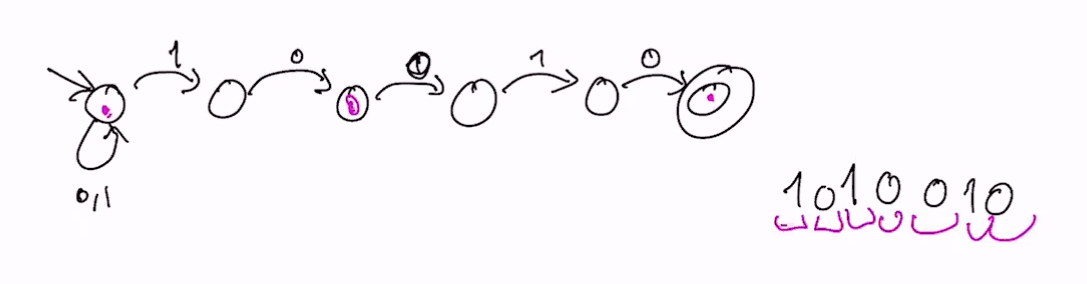 1 0 1 0
0,1
1010010